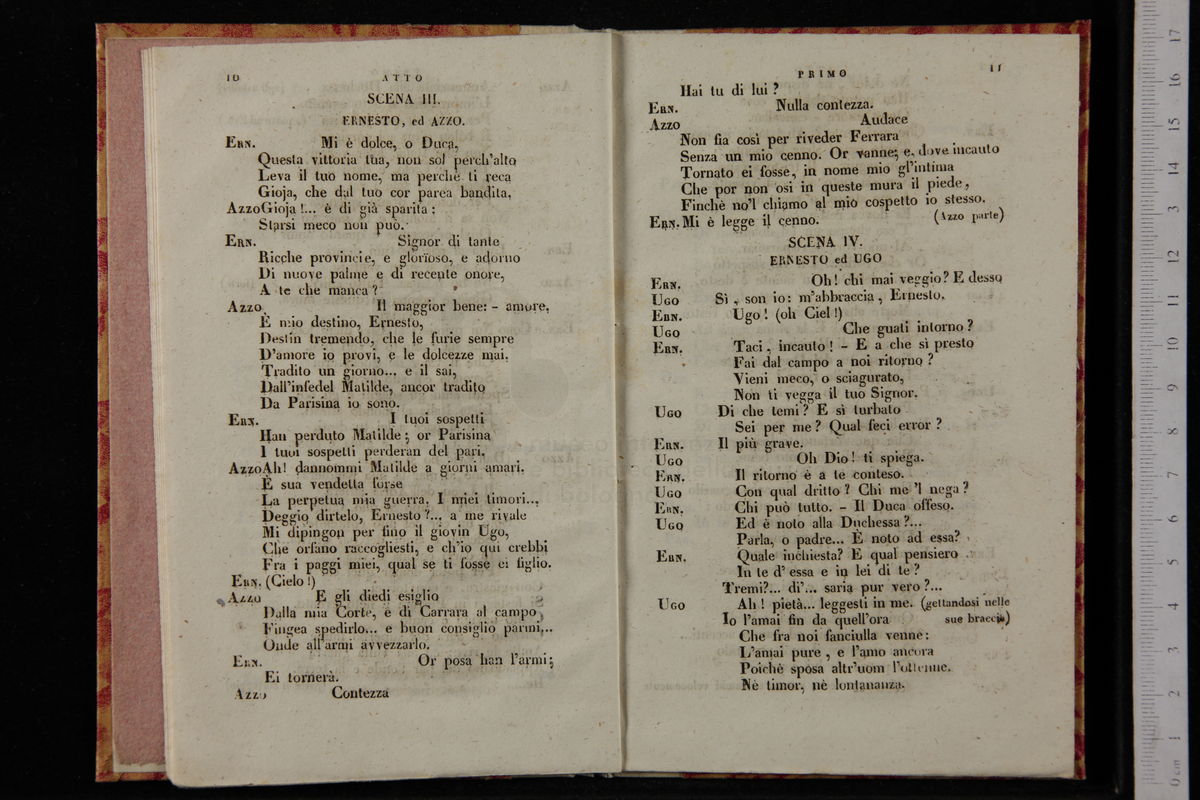 10 ATTO
SCENA III.
ERNESTO, ed AZZO.
ERN. Mi è dolce, o Duca,
Questa vittoria tua, non sol perch'alto
Leva il tuo nome, ma perchè ti reca
Gioja, che dal tuo cor parea bandita,
AZZO Gioja!... è di già sparita:
Starsi meco non può.
ERN. Signor di tante
Ricche provincie, e glorïoso, e adorno
Di nuove palme e di recente onore,
A te che manca?
AZZO Il maggior bene: - amore,
È mio destino, Ernesto,
Destin tremendo, che le furie sempre
D'amore io provi, e le dolcezze mai.
Tradito un giorno... e il sai,
Dall'infedel Matilde, ancor tradito
Da Parisina io sono.
ERN. I tuoi sospetti
Han perduto Matilde; or Parisina
I tuoi sospetti perderan del pari.
AZZO Ah! dannommi Matilde a giorni amari.
È sua vendetta forse
La perpetua mia guerra. I miei timori...
Deggio dirtelo, Ernesto?... a me rivale
Mi dipingon per fino il giovin Ugo,
Che orfano raccogliesti, e ch'io qui crebbi
Fra i paggi miei, qual se ti fosse ei figlio.
ERN. (Cielo!)
AZZO E gli diedi esiglio
Dalla mia Corte, e di Carrara al campo
Fingea spedirlo... e buon consiglio parmi...
Onde all'armi avvezzarlo.
ERN. Or posa han l'armi;
Ei tornerà.
AZZO Contezza
PRIMO 11
Hai tu di lui?
ERN. Nulla contezza.
AZZO Audace
Non fia così per riveder Ferrara
Senza un mio cenno. Or vanne; e, dove incauto
Tornato ei fosse, in nome mio gl'intima
Che por non osi in queste mura il piede,
Finchè no'l chiamo al mio cospetto io stesso.
ERN. Mi è legge il cenno. (Azzo parte)
SCENA IV.
ERNESTO ed UGO
ERN. Oh! chi mai veggio? E desso
UGO Sì, son io: m'abbraccia, Ernesto.
ERN. Ugo! (oh Ciel!)
UGO Che guati intorno?
ERN. Taci, incauto! - E a che sì presto
Fai dal campo a noi ritorno?
Vieni meco, o sciagurato,
Non ti vegga il tuo Signor.
UGO Di che temi? E sì turbato
Sei per me? Qual feci error?
ERN. Il più grave.
UGO Oh Dio! ti spiega.
ERN. Il ritorno è a te conteso.
UGO Con qual dritto? Chi me 'l nega?
ERN. Chi può tutto. - Il Duca offeso.
UGO Ed è noto alla Duchessa?...
Parla, o padre... È noto ad essa?
ERN. Quale inchiesta? E qual pensiero
In te d'essa e in lei di te?
Tremi?... di'... saria pur vero?...
UGO Ah! pietà... leggesti in me. (gettandosi nelle
Io l'amai fin da quell'ora sue braccia)
Che fra noi fanciulla venne:
L'amai pure, e l'amo ancora
Poichè sposa altr'uom l'ottenne.
Nè timor, nè lontananza.